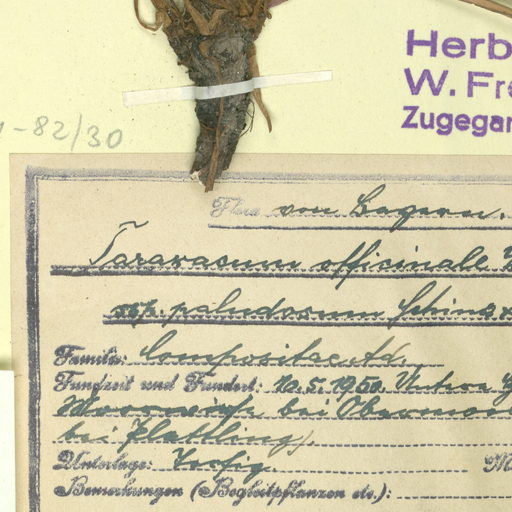 Herb
W. Fre
Zugegan
-82/30
Flora von Bayern.
Taraxacum officinale
ssp. paludosum Schinz
Familie: Compositae Ad.
Fundzeit und Fundort: 10.5.1950 Untere
bei Obermoos
bei Plattling).
Unterlage: Torfig.
Bemerkungen (Begleitpflanzen etc.):